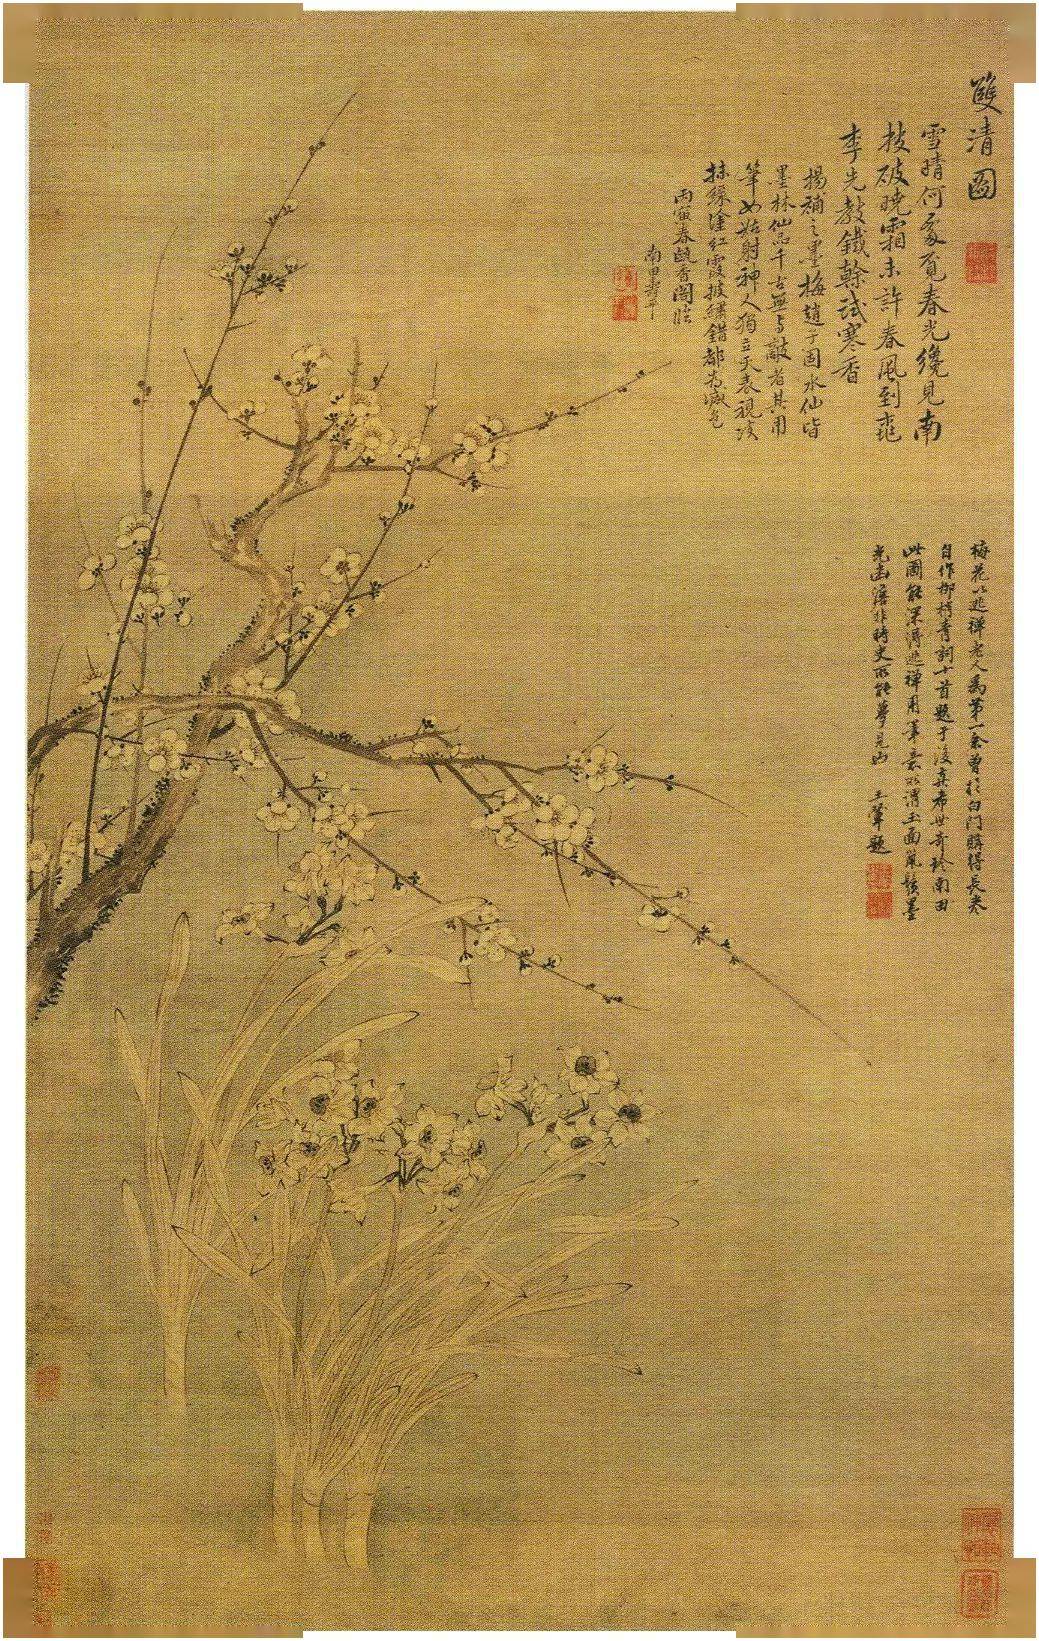 雙清圖
雪晴何處覓春光纔見南
枝破曉霜未許春風到桃
李先教鐵榦試寒香
楊補之墨梅趙子固水仙皆
墨林仙品千古無與敵者其用
筆如姑射神人獨立天表視彼
抹綠塗紅霞披繡錯都為減色
丙寅春甌香閣臨
南田壽平
梅花以逃禪老人為第一余曾於白門購得長卷
自作柳梢青詞十首題于後真希世奇珍南田
此圖能深得逃禪用筆意所謂玉面風鬟墨
光幽澹非時史所能夢見也 王翬題